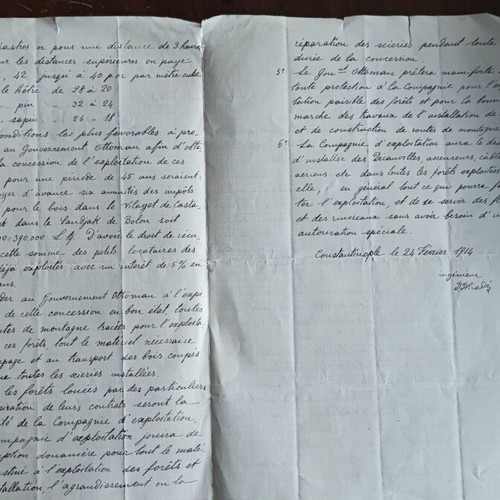 piastres ou pour une distance de 3 heures
ur les distances supérieures on paye
, 42 jusqu'à 40 p% par mètre cube
le Hêtre de 28 à 20
pin 32 à 24
sapin 26 - 18
conditions les plus favorables à pro
au Gouvernement Ottoman afin d'obte
la concession de l'exploitation de ces
pour une période de 45 ans seraient:
d'avance six annuités des impôts
pour le bois dans le Vilayet de Casta
et dans le Sandjak de Bolou soit
= 390.000 L.T. D'avoir le droit de
cette somme des petits locataires des
déjà exploités avec un intérêt de 5% en
ans.
au Gouvernement Ottoman à l'expi
de cette concession en bon état, toutes
routes de montagne tracées pour l'exploita
ces forêts tout le matériel nécessaire
page et au transport des bois coupés
que toutes les scieries installées.
les forêts louées par des particuliers
uration de leurs contrats seront la
té de la Compagnie d'exploitation
ompagnie d'exploitation jouira de
ption douanière pour tout le maté
à l'exploitation des forêts et
tallation l'agrandissement ou la
réparation des scieries pendant toute
durée de la concession.
5° Le Gouvnt Ottoman prêtera main-forte
toute protection à la Compagnie pour l'
tation paisible des forêts et pour la bonne
marche des travaux de l'installation de
et de construction de routes de montagne
6° La Compagnie d'exploitation aura le dro
d'installer des Decauvilles, ascenseurs, câble
aériens etc dans toutes les forêts exploitées
elle, en général tout ce qui pourra
ter l'exploitation, et de se servir des fl
et des ruisseaux sans avoir besoin d'
autorisation spéciale.
Constantinople le 24 Février 1914
ingénieur